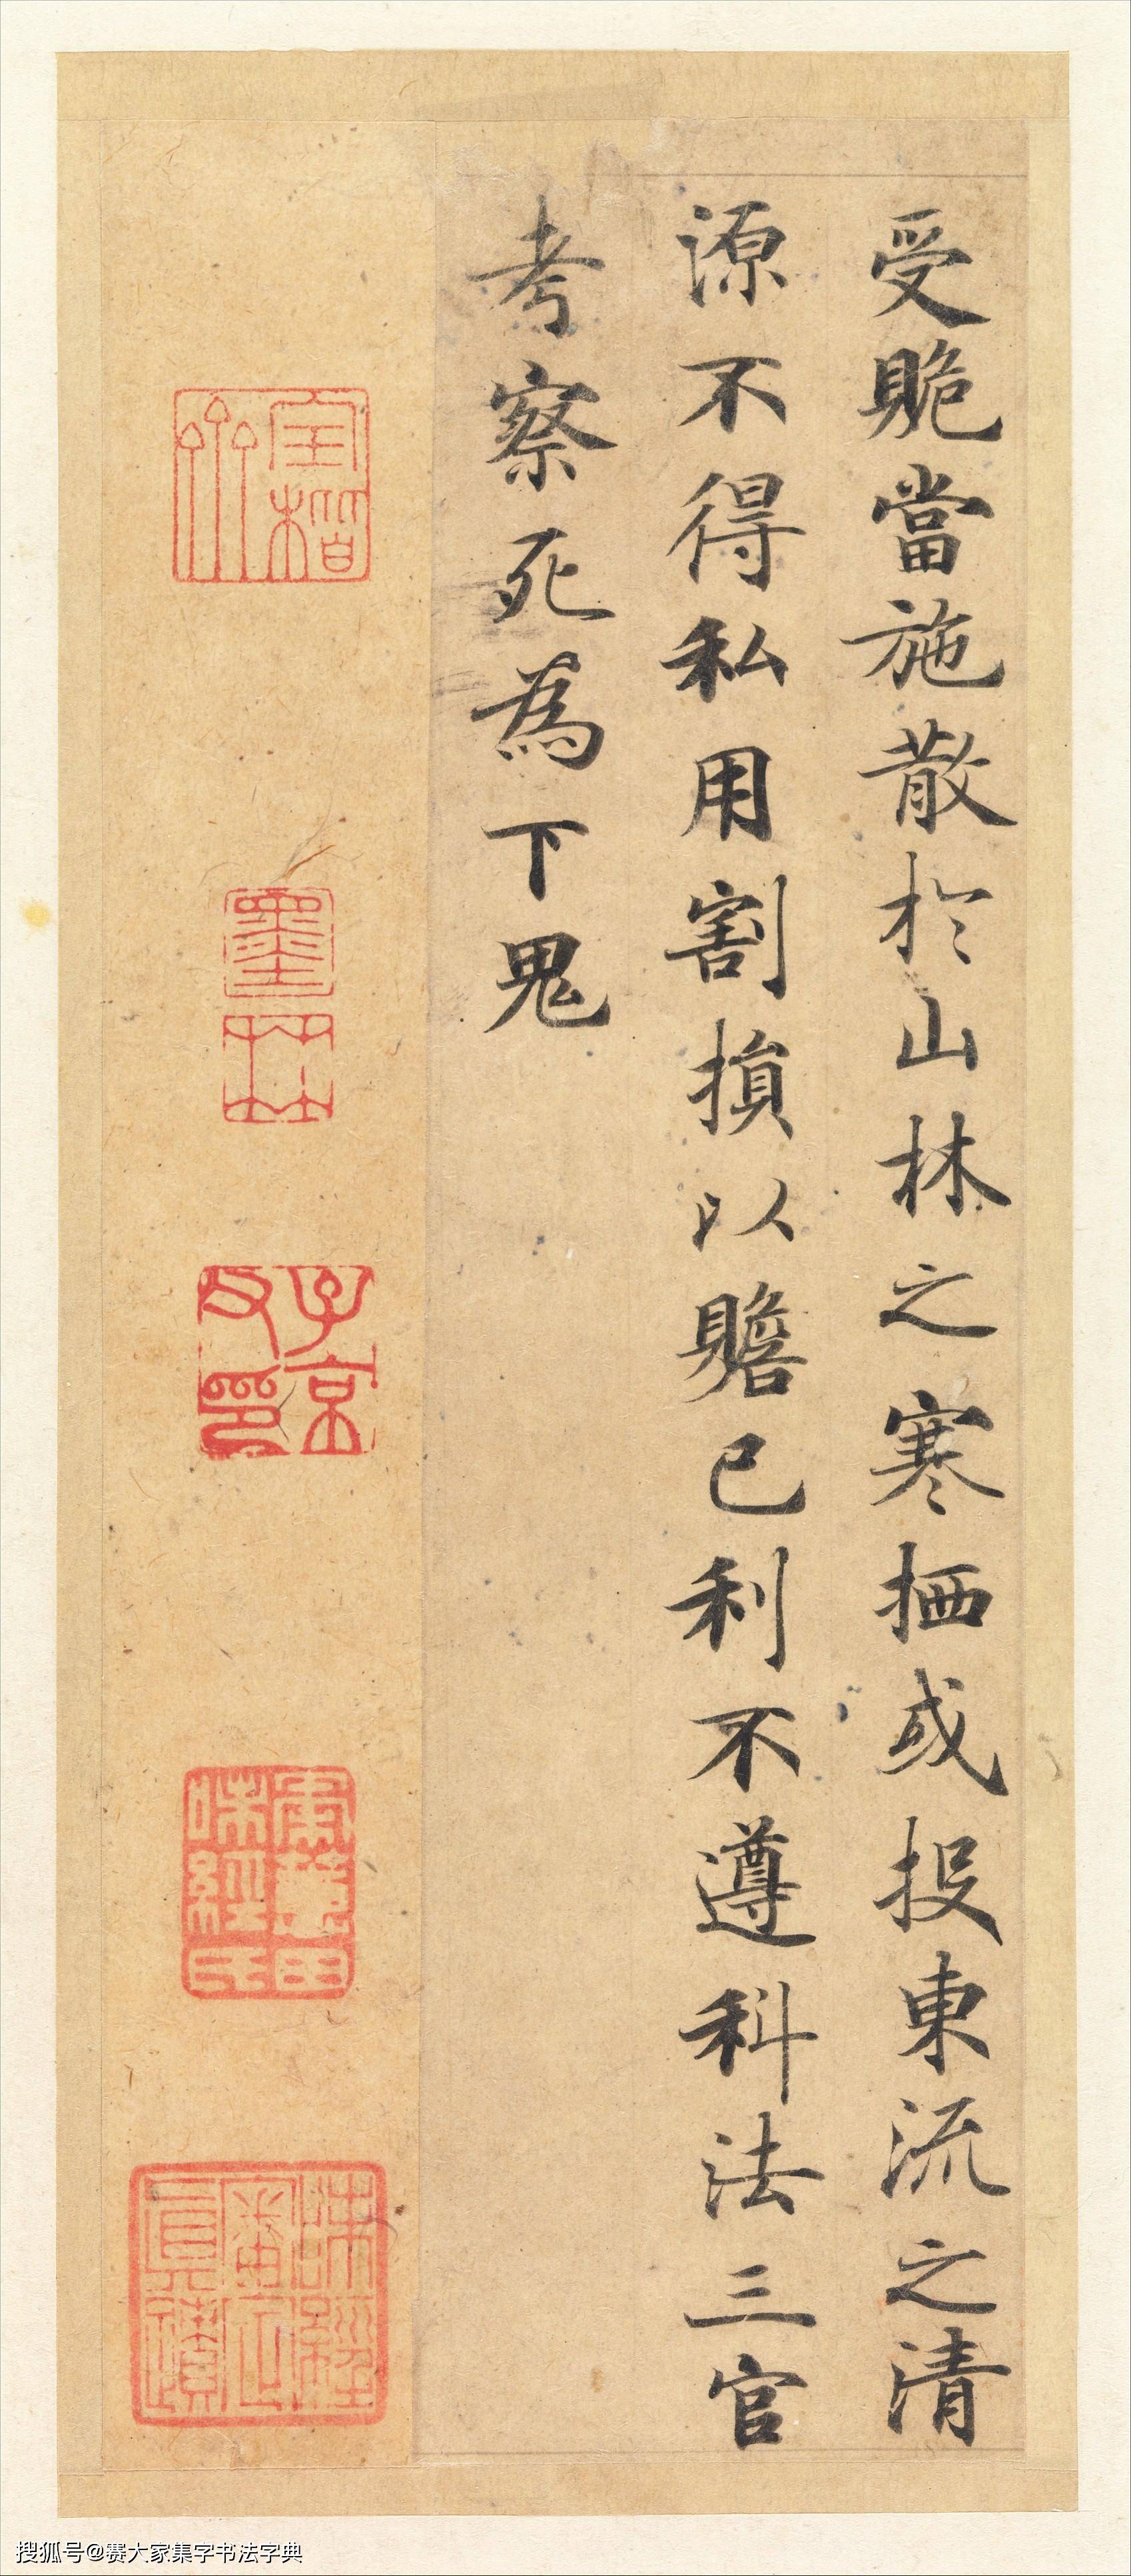 受賝當施散於山林之寒栖或投東流之清
源不得私用割損以贍己利不遵科法三官
考察死為下鬼
墨林
子京父印
搜狐号@赛大家集字书法字典